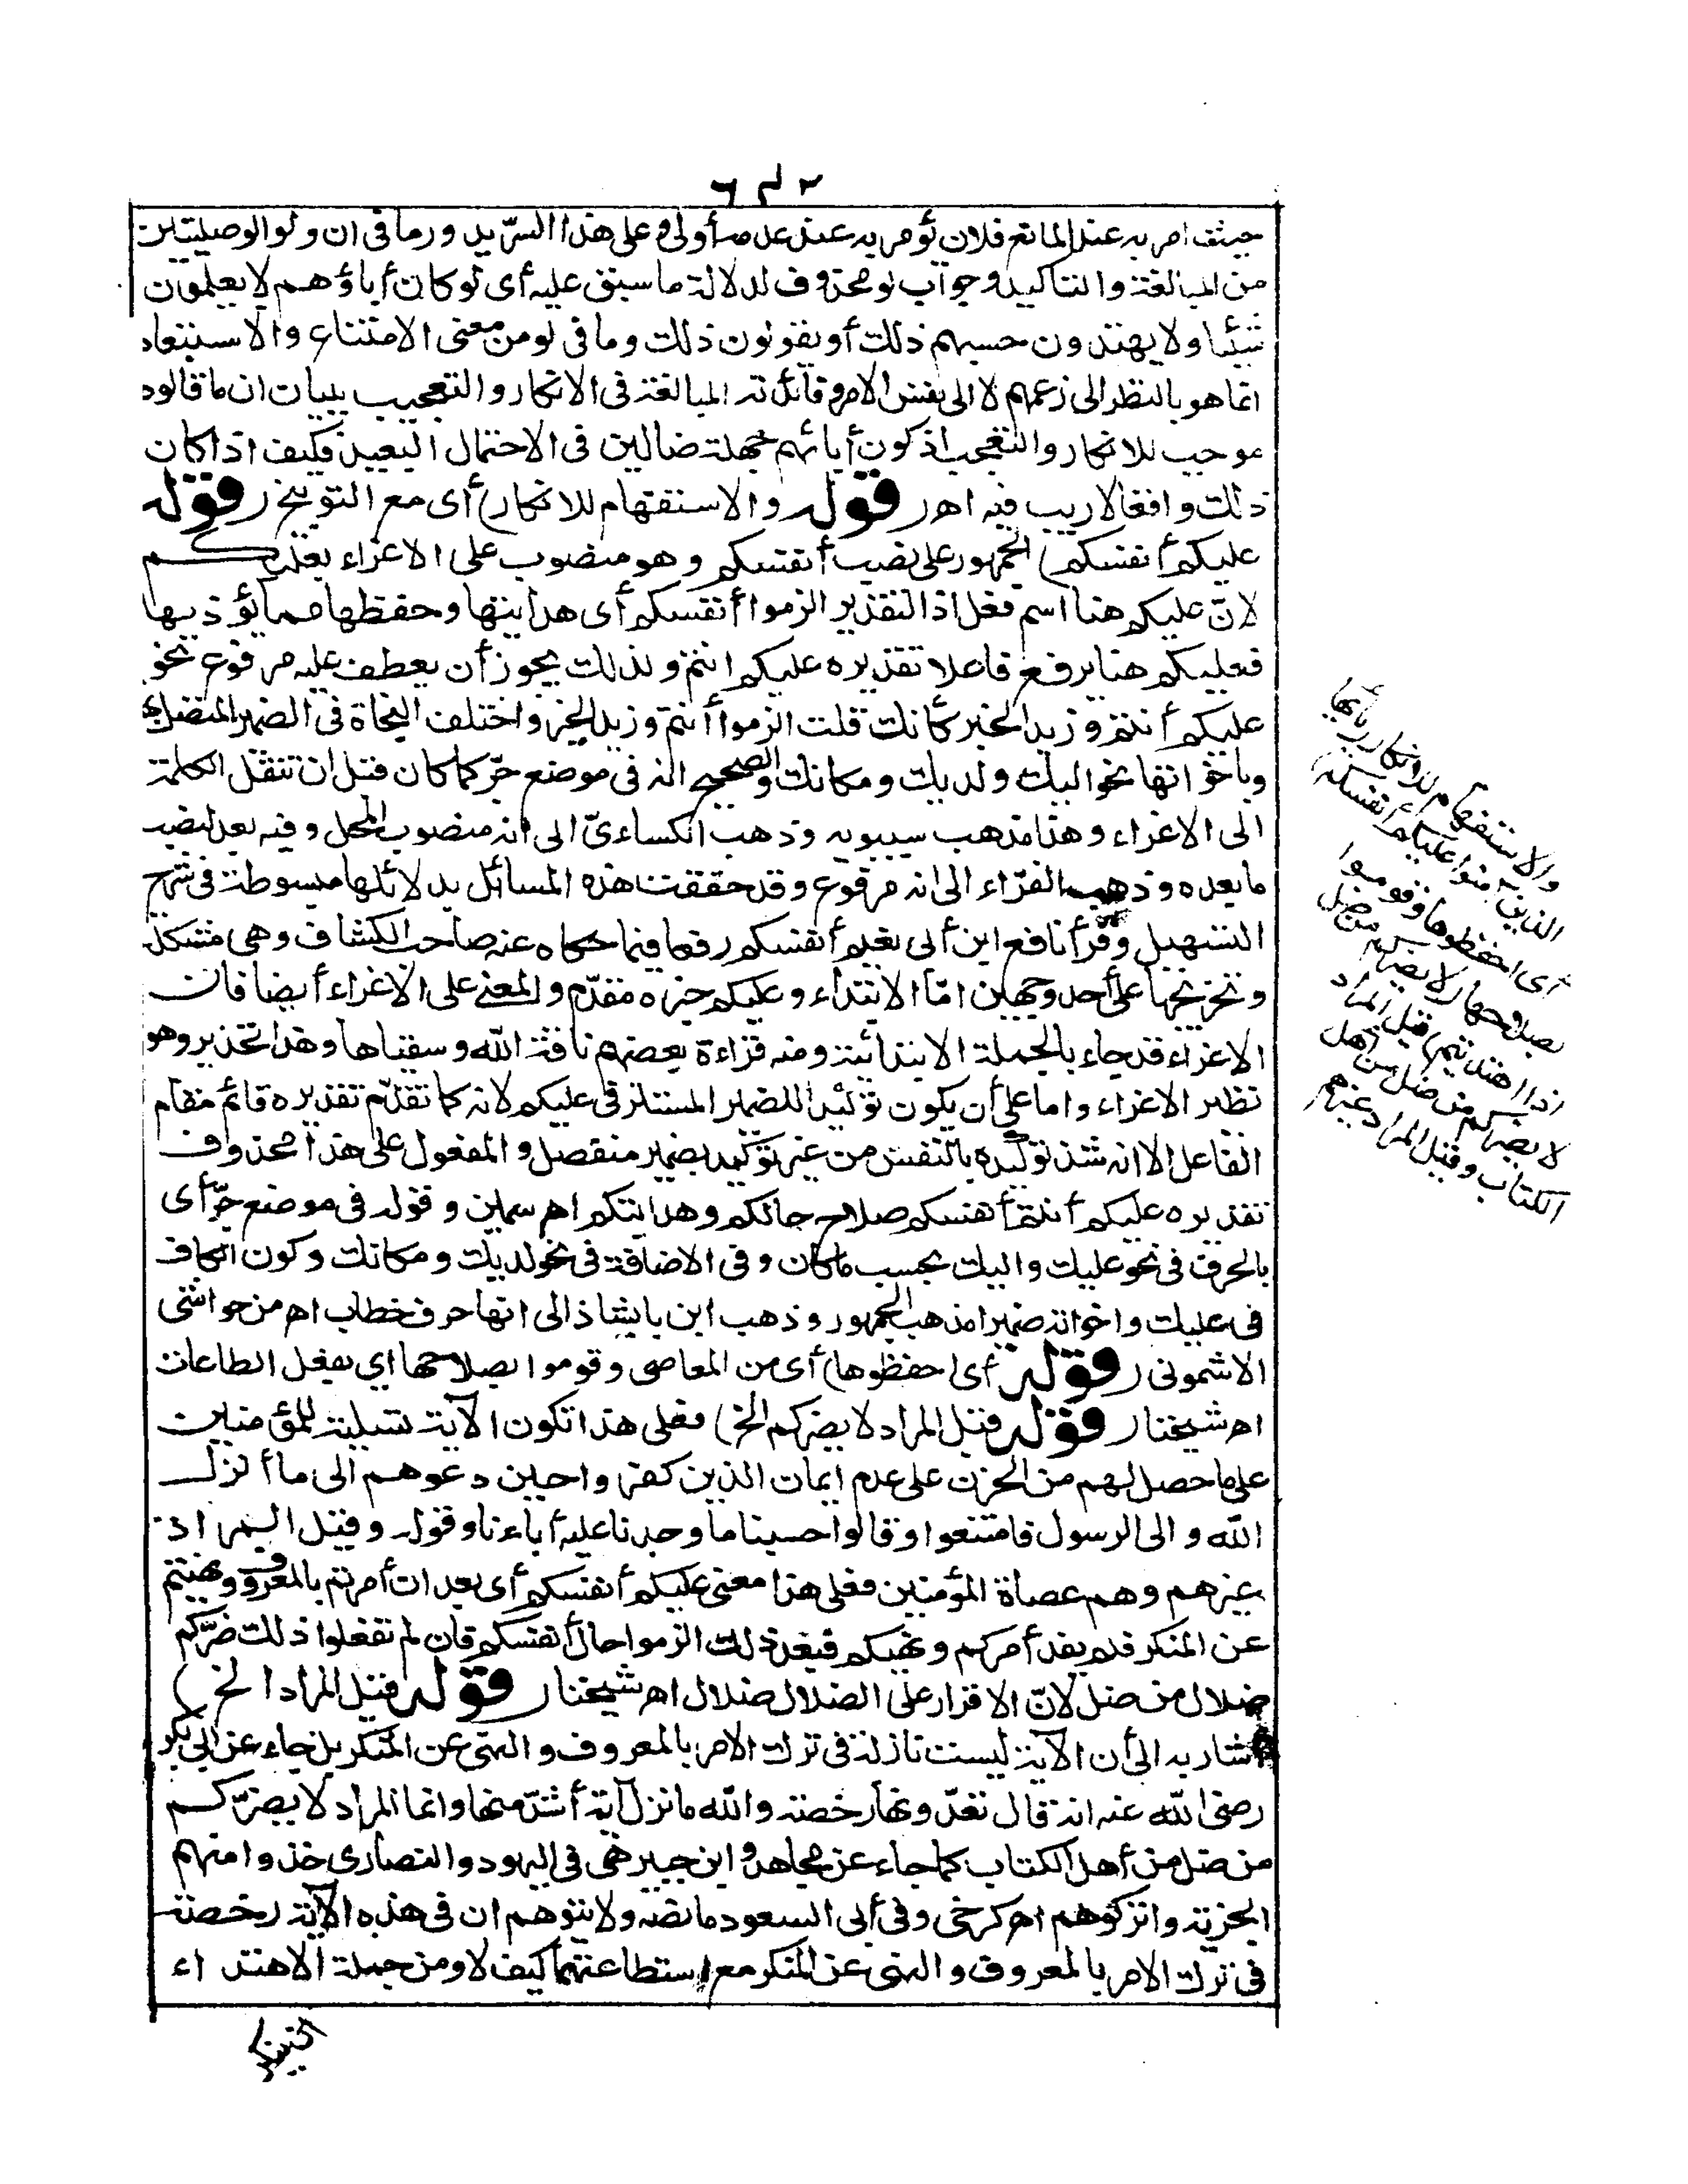 حيث امر به عند المانع فلان يؤمر به عند عدمه أولى وعلى هذا السرّ يدور ما في ان ولو الوصليتين
من المبالغة والتأكيد وجواب لو محذوف لدلالة ما سبق عليه أي لو كان أباؤهم لا يعلمون
شيئا ولا يهتدون حسبهم ذلك أو يقولون ذلك وما في لو من معنى الامتناع والاستبعاد
انما هو بالنظر الى زعمهم لا الى نفس الامر وفائدته المبالغة في الانكار والتعجيب ببيان ان ما قالوه
موجب للانكار والتعجب اذ كون أبائهم جهلة ضالين في الاحتمال البعيد فكيف اذا كان
ذلك واقعا لا ريب فيه اهـ (قوله والاستفهام للانكار) أي مع التوبيخ (قوله
عليكم أنفسكم) الجمهور على نصب أنفسكم وهو منصوب على الاغراء بعليكم
لانّ عليكم هنا اسم فعل اذ التقدير الزموا أنفسكم أي هدايتها وحفظها مما يؤذيها
فعليكم هنا يرفع فاعلا تقديره عليكم انتم ولذلك يجوز أن يعطف عليه مرفوع نحو
عليكم أنتم وزيد الخير كأنك قلت الزموا أنتم وزيد الخير واختلف النحاة في الضمير المتصل بها
وباخواتها نحو اليك ولديك ومكانك والصحيح انه في موضع جرّ كما كان قبل ان تنقل الكلمة
الى الاغراء وهذا مذهب سيبويه وذهب الكسائيّ الى انه منصوب المحل وفيه بعد لنصب
ما بعده وذهب الفرّاء الى انه مرفوع وقد حققت هذه المسائل بدلائلها مبسوطة في شرح
التسهيل وقرأ نافع ابن أبي نعيم أنفسكم رفعا فيما حكاه عنه صاحب الكشاف وهي مشكلة
وتخريجها على أحد وجهين امّا الابتداء وعليكم خبره مقدّم والمعنى على الاغراء أيضا فان
الاغراء قد جاء بالجملة الابتدائية ومنه قراءة بعضهم ناقة الله وسقياها وهذا تحذير وهو
نظير الاغراء واما على أن يكون توكيدا للضمير المستتر في عليكم لانه كما تقدّم تقديره قائم مقام
الفاعل الا انه شذ توكيده بالنفس من غير توكيد بضمير منفصل والمفعول على هذا محذوف
تقديره عليكم أنتم أنفسكم صلاح حالكم وهدايتكم اهـ سمين وقوله في موضع جرّ أي
بالحرف في نحو عليك واليك بحسب ما كان وفي الاضافة في نحو لديك ومكانك وكون الكاف
في عليك واخواته ضميرا مذهب الجمهور وذهب ابن بابشاذ الى انها حرف خطاب اهـ من حواشي
الاشموني (قوله أي احفظوها) أي من المعاصي وقوموا بصلاحها اي بفعل الطاعات
اهـ شيخنا (قوله قيل المراد لا يضركم الخ) فعلى هذا تكون الآية تسلية للمؤمنين
على ما حصل لهم من الحزن على عدم ايمان الذين كفروا حين دعوهم الى ما أنزل
الله والى الرسول فامتنعوا وقالوا حسبنا ما وجدنا عليه أباءنا وقوله وقيل المراد
غيرهم وهم عصاة المؤمنين فعلى هذا معنى عليكم أنفسكم أي بعد ان أمرتم بالمعروف ونهيتم
عن المنكر فلم يفد أمركم ونهيكم فبعد ذلك الزموا حال أنفسكم فان لم تفعلوا ذلك ضرّكم
ضلال من ضل لانّ الاقرار على الضلال ضلال اهـ شيخنا (قوله قيل المراد الخ)
أشار به الى أن الآية ليست نازلة في ترك الامر بالمعروف والنهي عن المنكر بل جاء عن ابي بكر
رضى الله عنه انه قال نعدّونها رخصة والله ما نزل آية أشدّ منها وانما المراد لا يضرّكم
من ضل من أهل الكتاب كما جاء عن مجاهد وابن جبير هي في اليهود والنصارى خذوا منهم
الجزية واتركوهم اهـ كرخي وفي أبي السعود ما نصه ولا يتوهم ان في هذه الآية رخصة
في ترك الامر بالمعروف والنهي عن المنكر مع استطاعتهما كيف لا ومن جملة الاهتداء
والاستفهام للانكار (يا أيها
الذين آمنوا عليكم أنفسكم)
أي احفظوها وقوموا
بصلاحها (لا يضركم من ضل
اذا اهتديتم) قيل المراد
لا يضركم من ضل من أهل
الكتاب وقيل المراد غيرهم